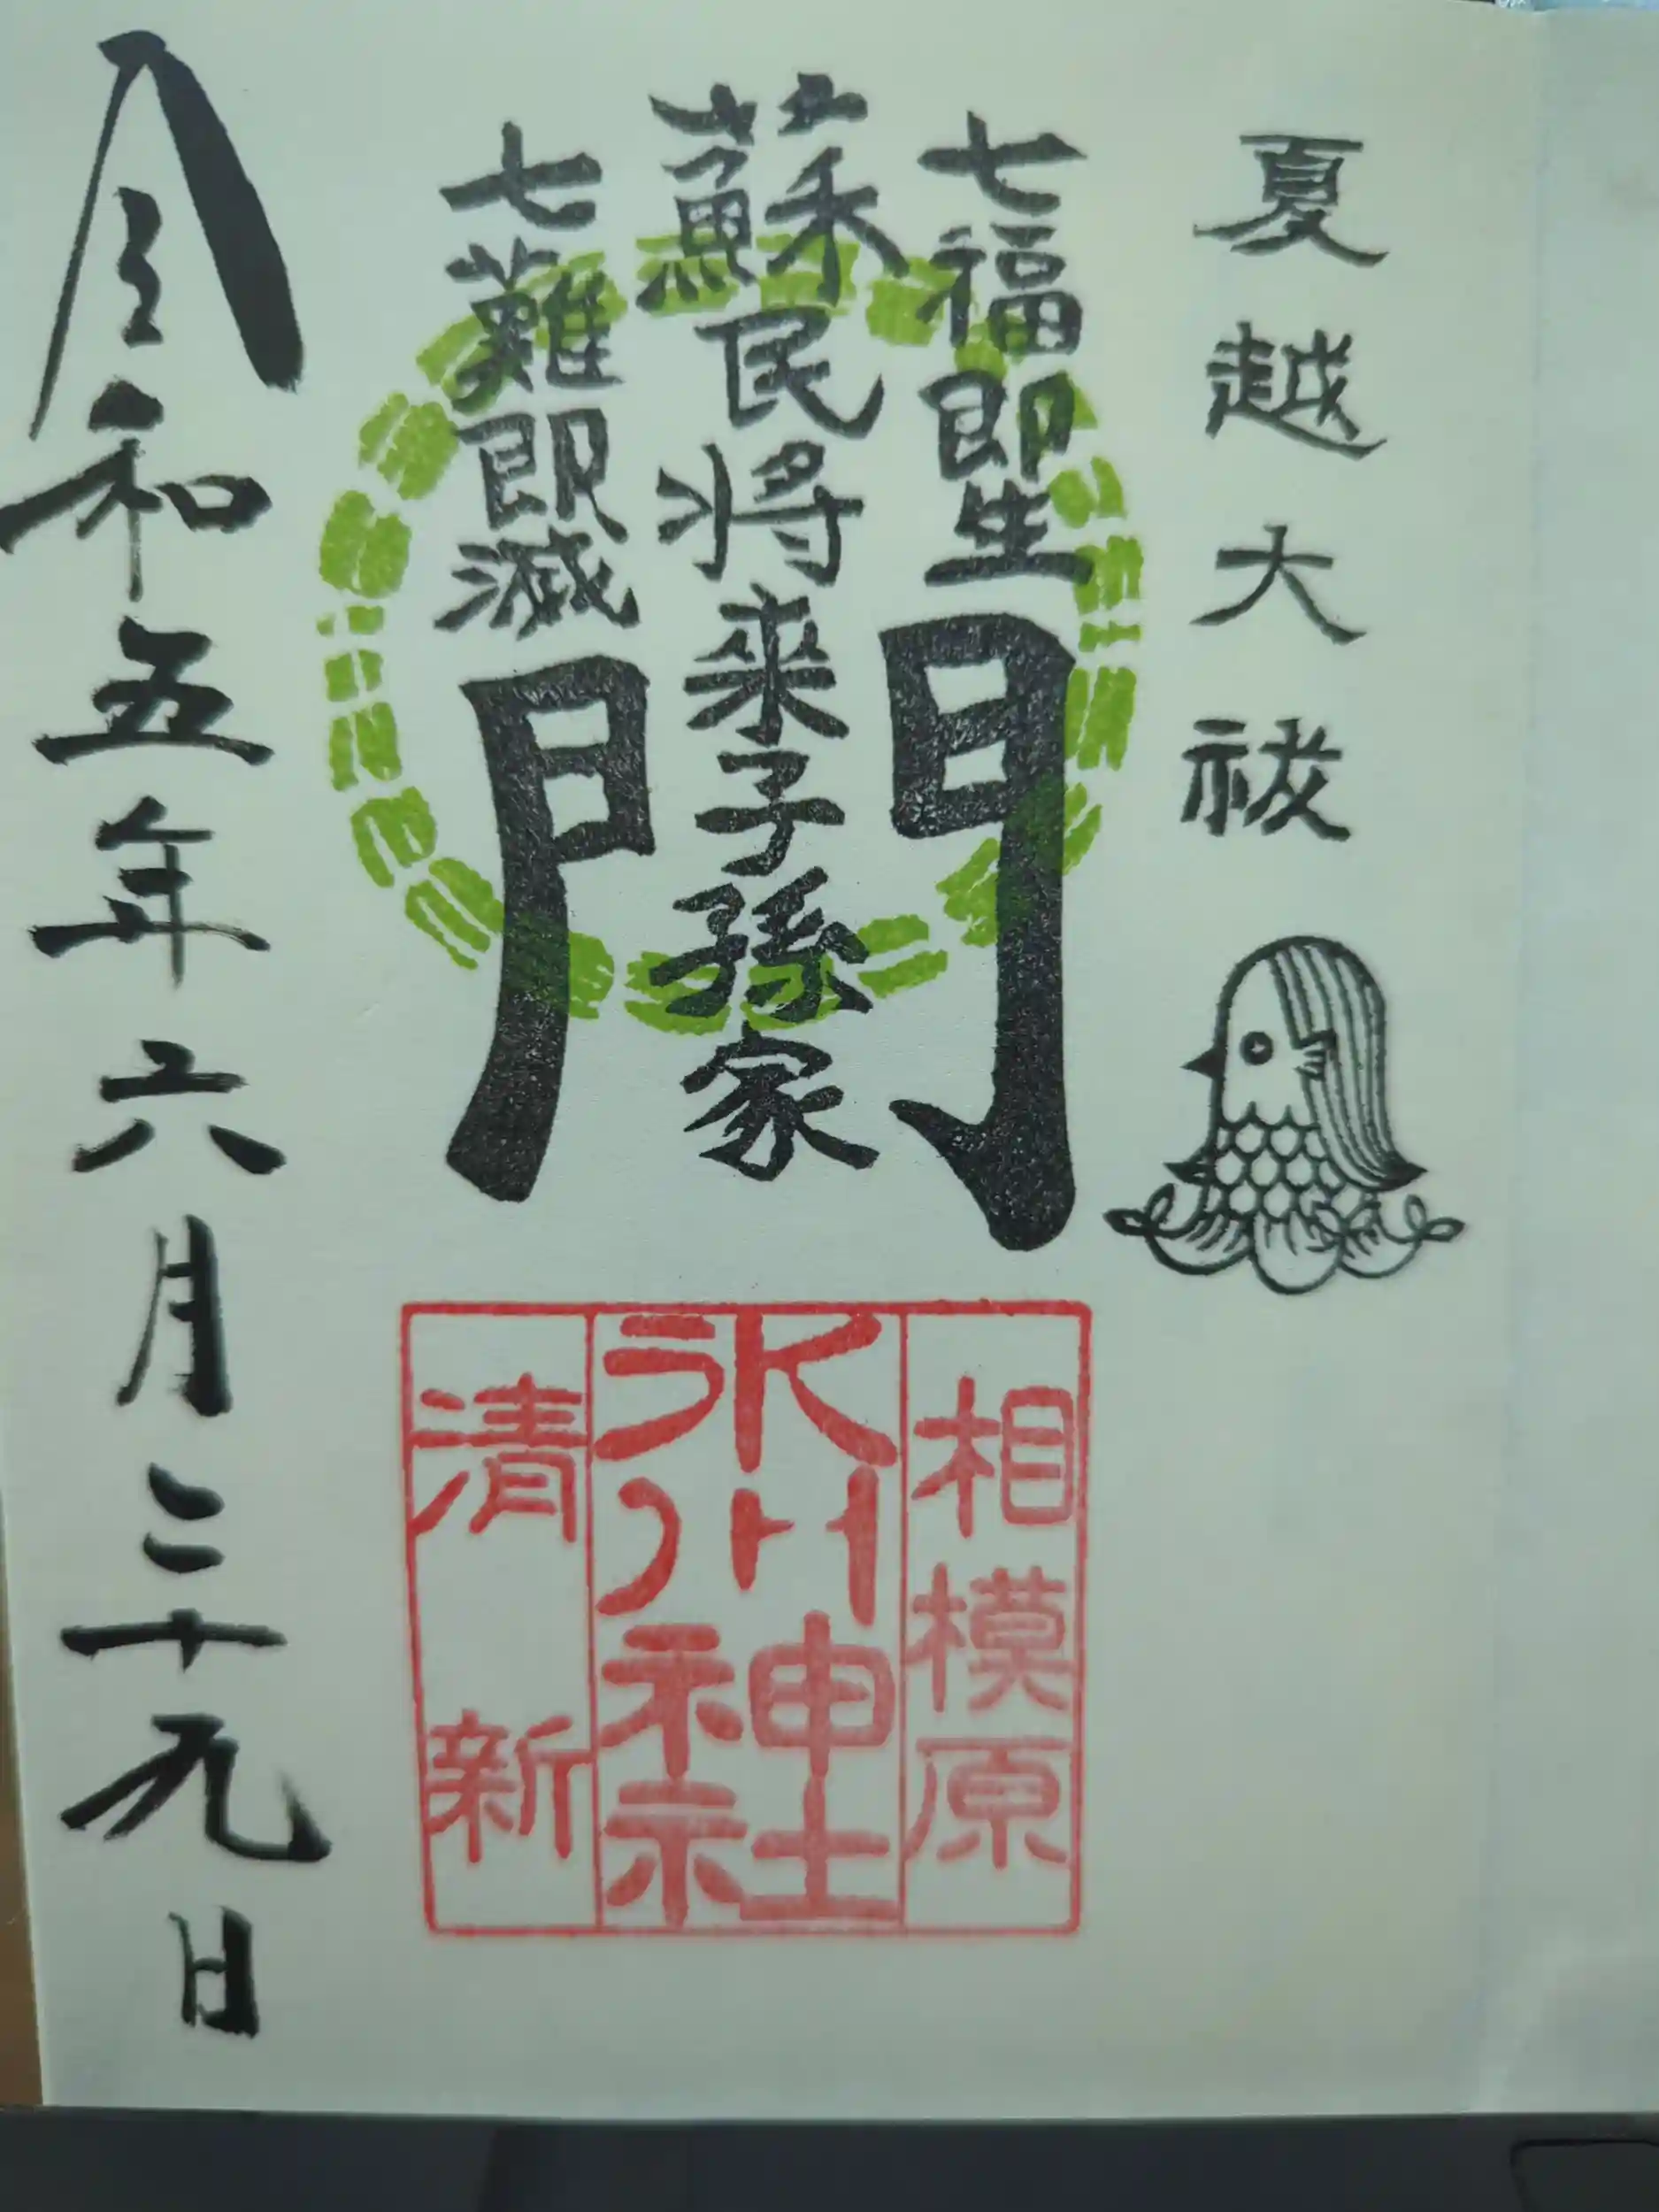 夏越大祓
七福即生
蘇民将来子孫家
門
七難即滅
相模原
氷川神社
清新
令和五年六月二十九日